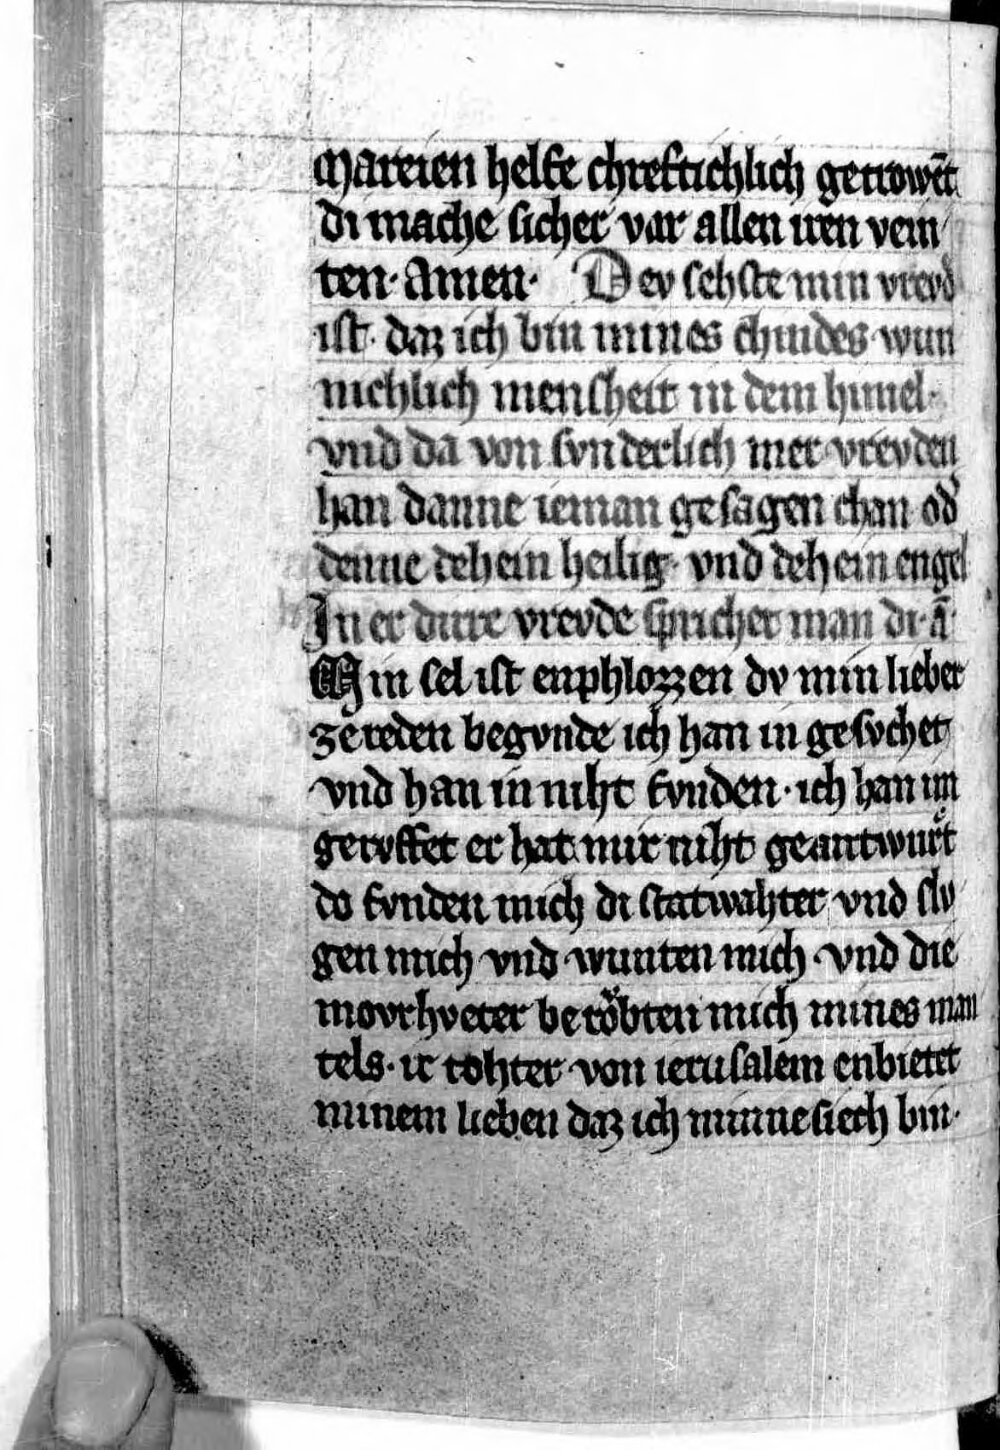 Mareien helfe chreftichlich getrowēt
di mache sicher var allen iren vein
ten· Amen· Dev sehste min vrevd
ist· daz ich bin mines chindes wun
nichlich mensheit in dem himel·
vnd da von svnderlich mer vrevden
han danne ieman gesagen chan od'
denne dehein heilig· vnd dehein engel
In er dirre vrevde sprichet man di· ā·
Min sel ist enphlozzen dv min lieber
ze reden begvnde ich han in gesvchet
vnd han in niht fvnden· ich han im
gervffet er hat mir niht geantwurͤt
do fvnden mich di statwahter vnd slv
gen mich vnd wunten mich vnd die
movrhveter berǒbten mich mines man
tels· ir tohter von ierusalem enbietet
minem lieben daz ich minnesiech bin·